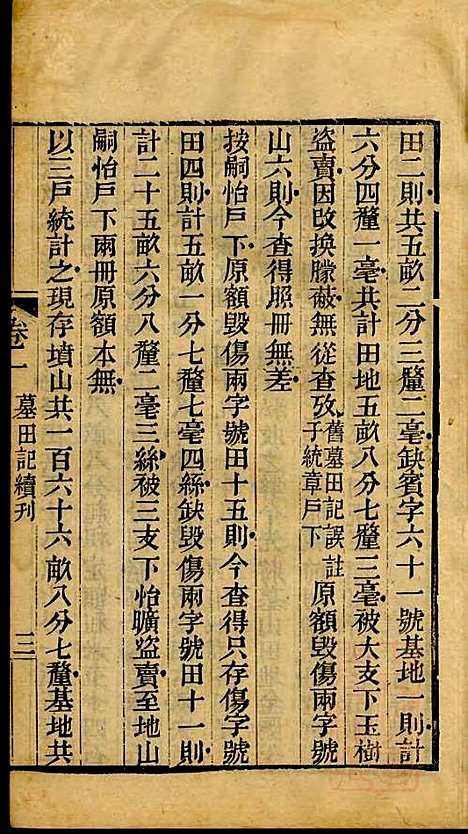 田二則共五畝二分三釐二毫缺賓字六十一號基地一則計
六分四釐一毫共計田地五畝八分七釐三毫被大支下玉樹
盜賣因改換朦蔽無從查攷舊墓田記誤註子統章戶下原額毀傷兩字號
山六則今查得照冊無差
按嗣怡戶下原額毀傷兩字號田十五則今查得只存傷字號
田四則計五畝一分七釐七毫四絲缺毀傷兩字號田十一則
計二十五畝六分八釐二毫三絲被三支下怡曠盜賣至地山
嗣怡戶下兩冊原額本無
以三戶統計之現存墳山共一百六十六畝八分七釐基地共
卷一 墓田記續刊 三